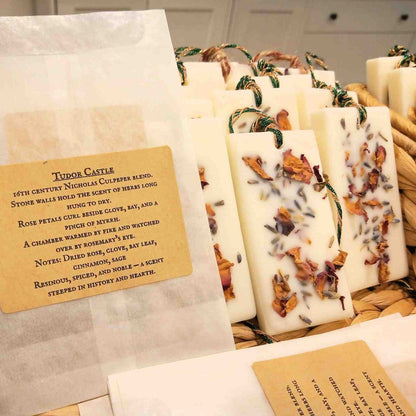 Tudor Castle
16th century Nicholas Culpeper blend.
Stone walls hold the scent of herbs long
hung to dry.
Rose petals curl beside glove, bay, and a
pinch of myrrh.
A chamber warmed by fire and watched
over by rosemary's eye.
Notes: Dried rose, glove, bay leaf,
cinnamon, sage
Resinous, spiced, and noble – a scent
steeped in history and hearth.